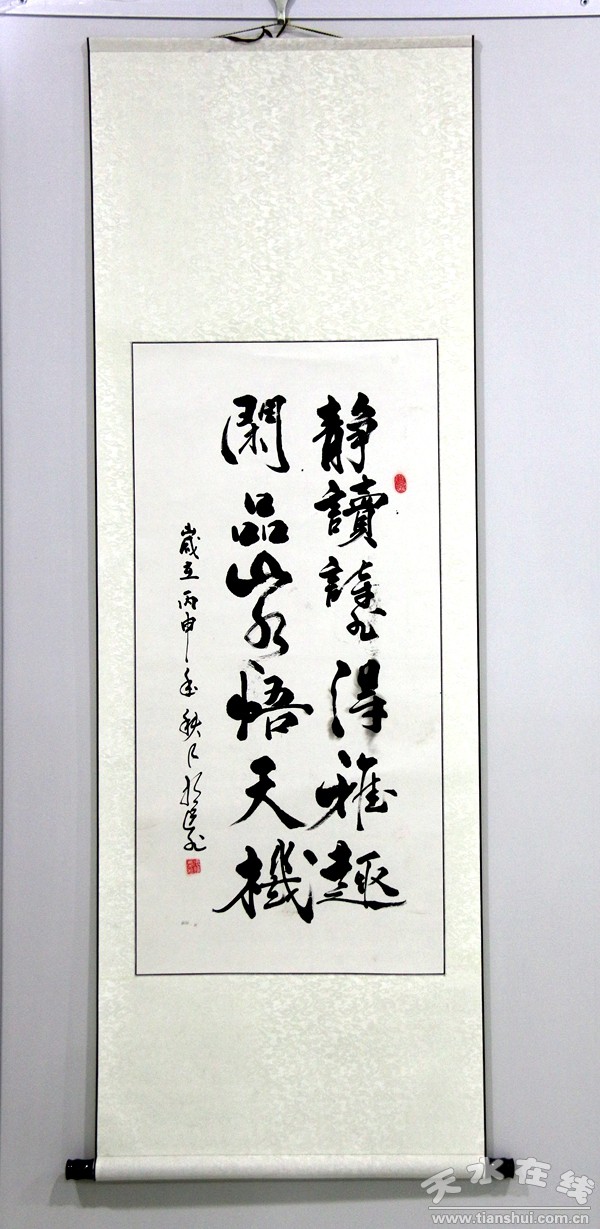 静讀詩卷得雅趣
閑品山水悟天機
歲在丙申年秋月
天水在线
www.tianshui.com.cn